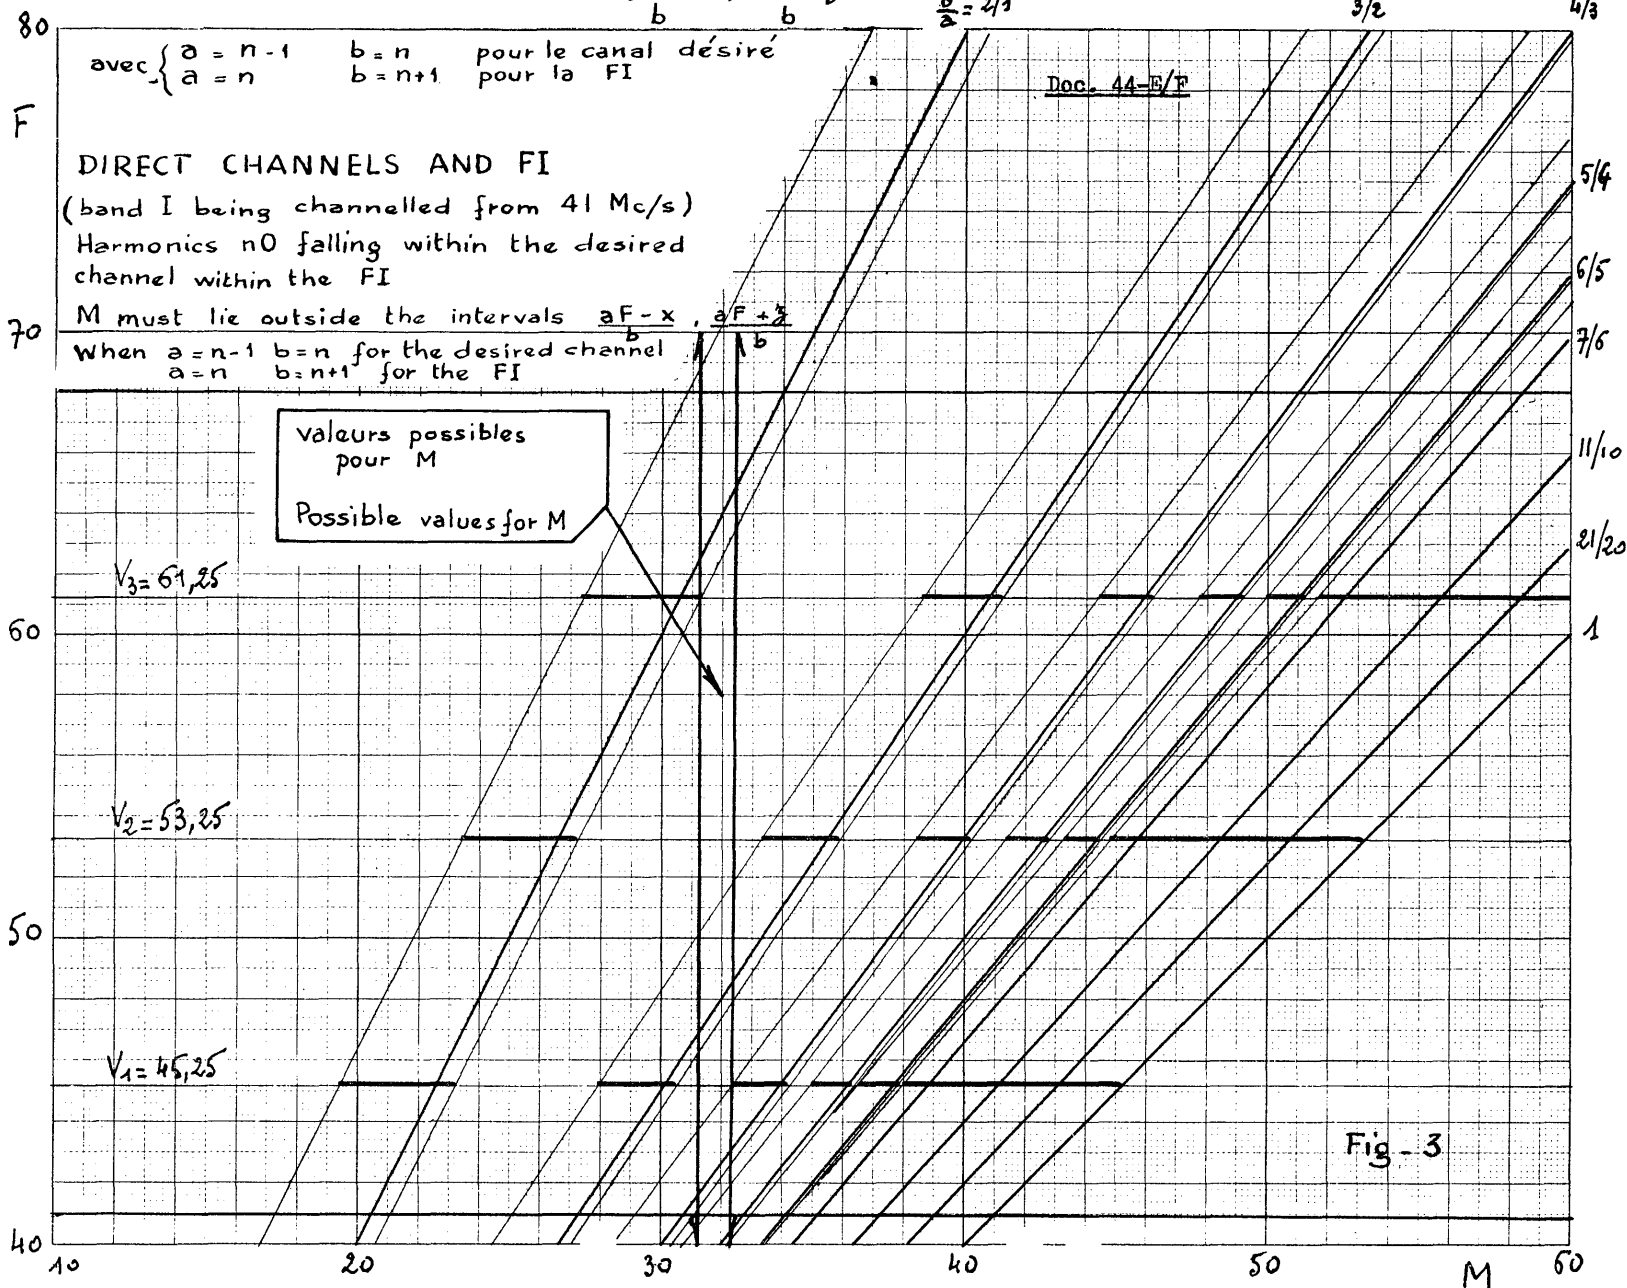 b b
b/a = 2/1
3/2
4/3
80
avec { a = n-1 b = n pour le canal désiré
a = n b = n+1 pour la FI
Doc. 44-E/F
F
DIRECT CHANNELS AND FI
(band I being channelled from 41 Mc/s)
Harmonics nO falling within the desired
channel within the FI
M must lie outside the intervals aF - x / b , aF + z / b
When a = n-1 b = n for the desired channel
a = n b = n+1 for the FI
5/4
6/5
70
7/6
valeurs possibles
pour M
Possible values for M
11/10
21/20
V3 = 61,25
60
1
V2 = 53,25
50
V1 = 45,25
Fig - 3
40
10 20 30 40 50 M 60